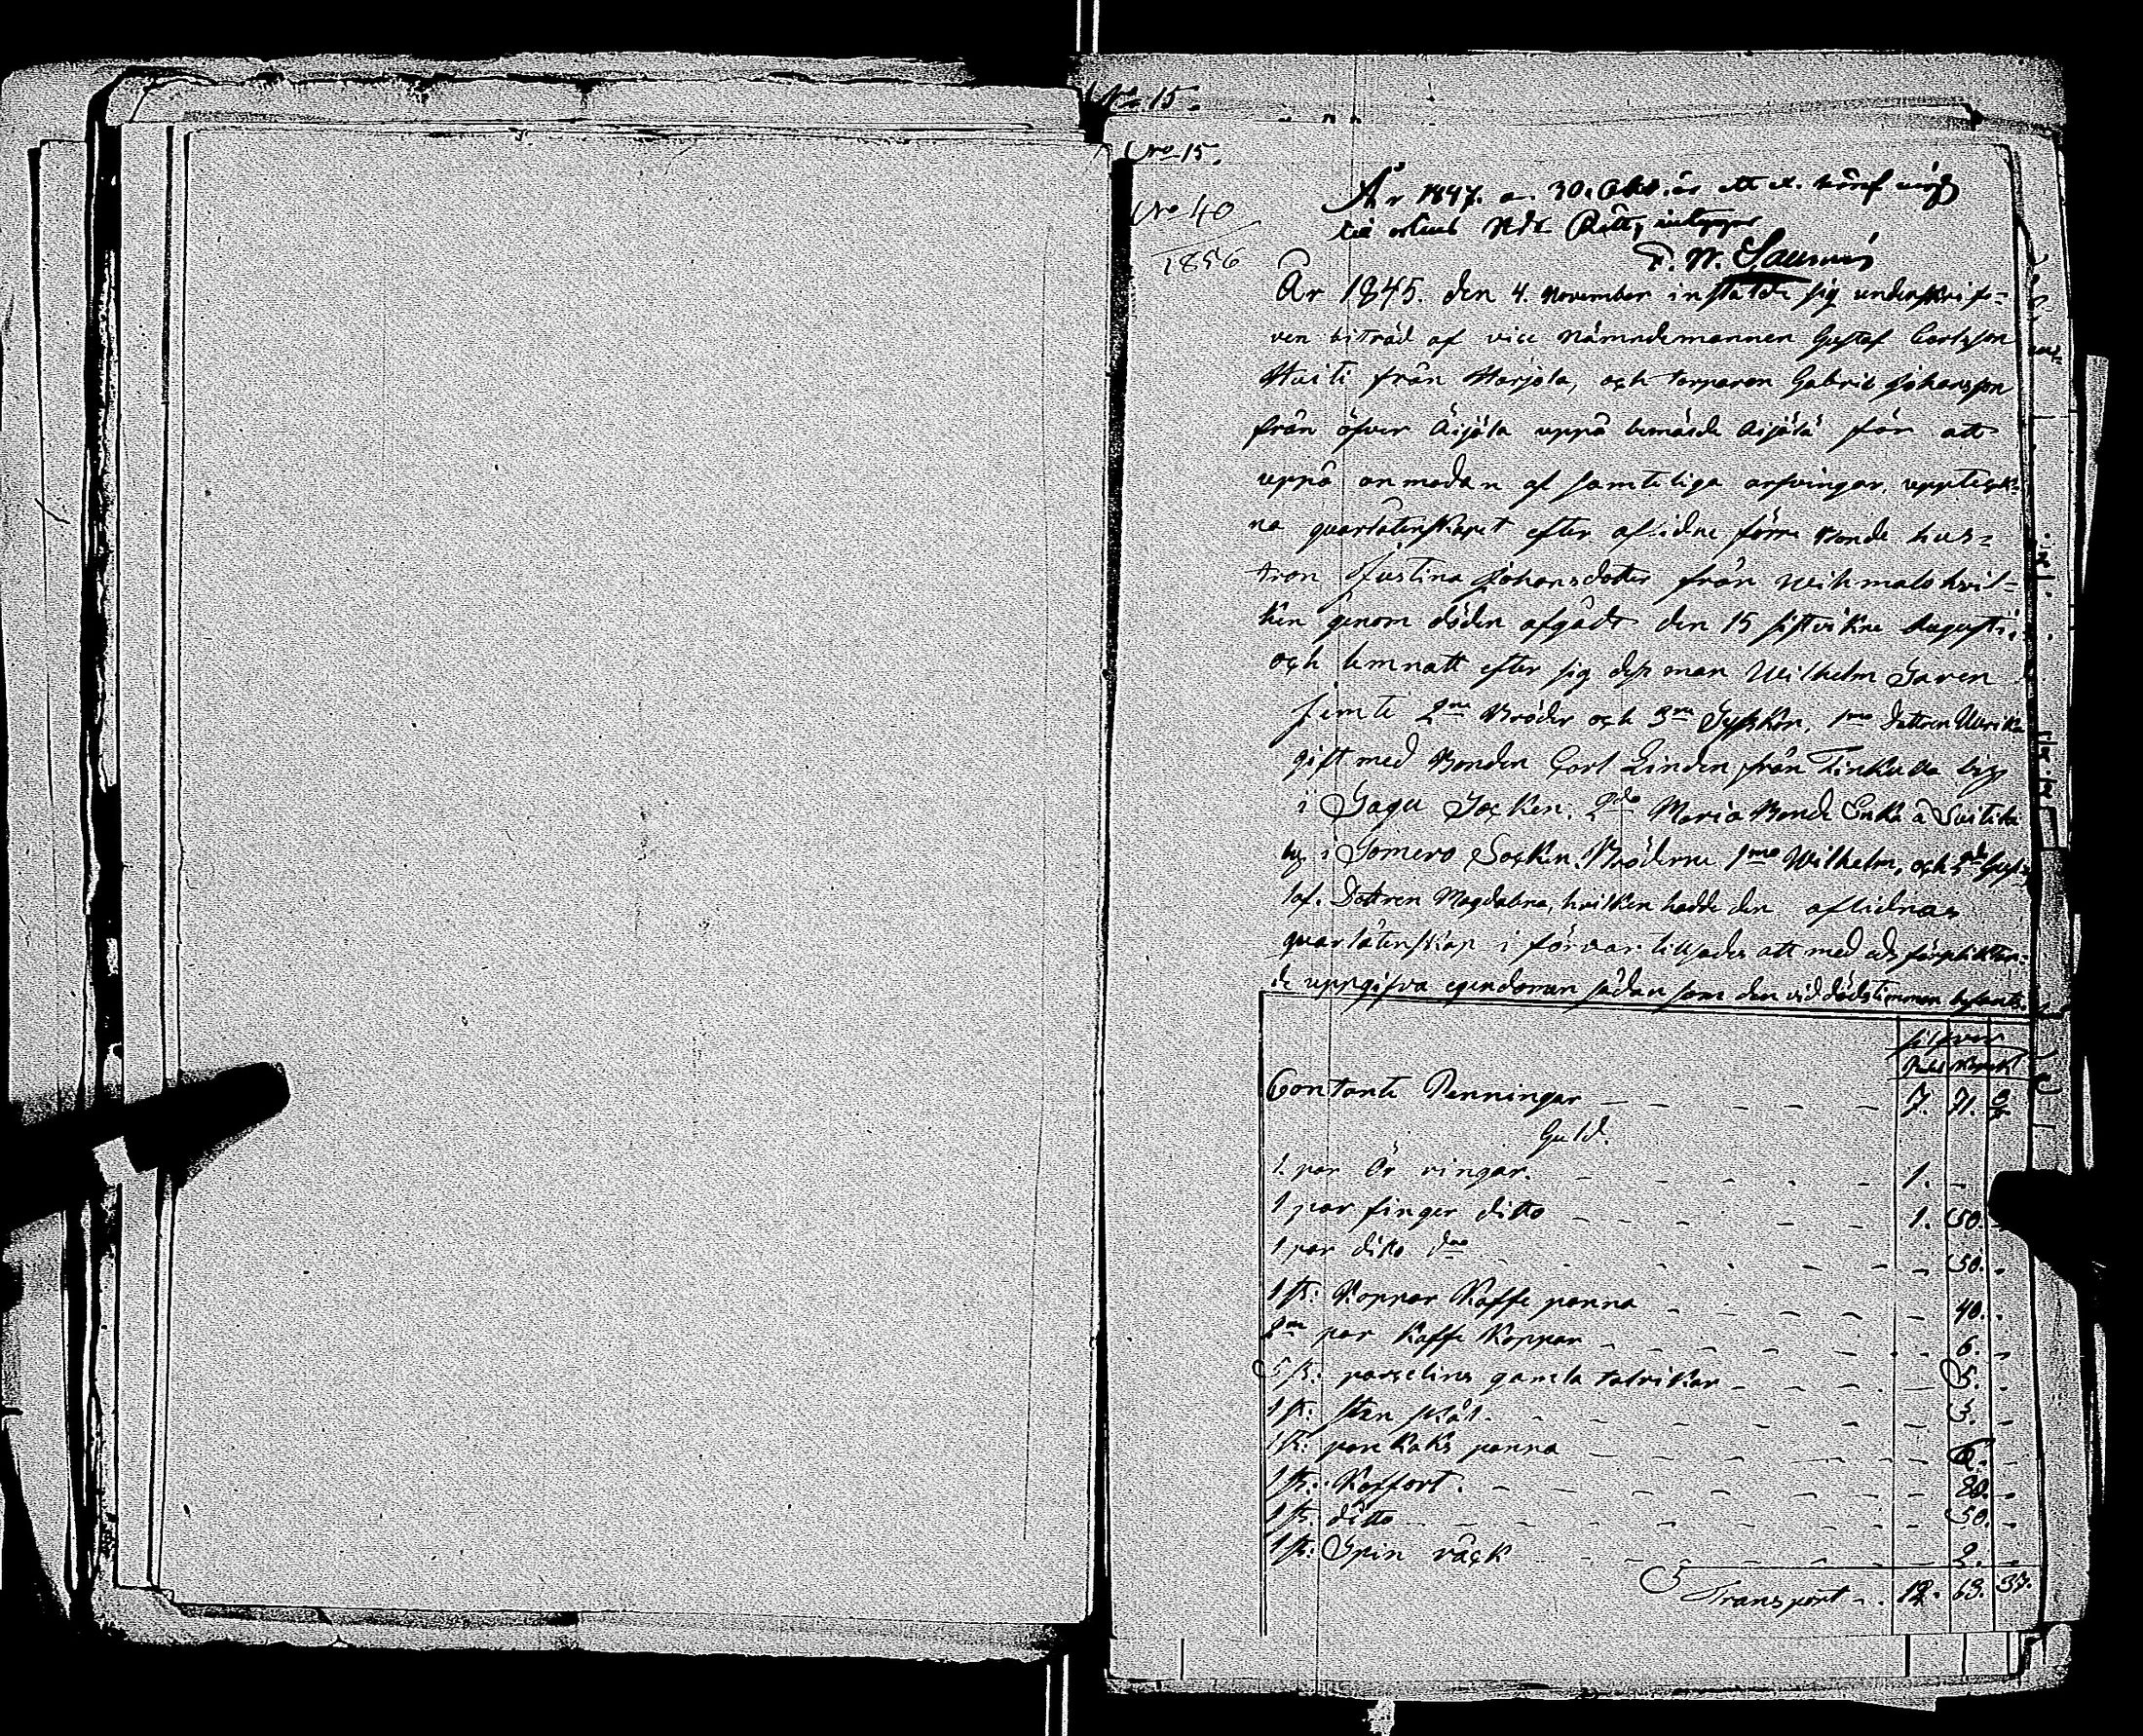 No 15.
No 15.
No 40
1856
År 1847. d. 30. Okt. är ett ex.
till Rätt,
F. W.
År 1845. den 4. November instälde sig underskrif-
ven biträd af vice Nämndemannen Gustaf Carlsson
Huiti från Harjola, och torparen Gabriel Johansson
från öfver Äijälä uppå bemälde Äijälä för att
uppå anmodan af samteliga arfvingar, uppteck-
na quarlåtenskapet efter aflidne förre Bonde hus-
tron Justina Johansdotter från Wihmalo hvil-
ken genom döden afgådt den 15 sistvikne Augusti,
och lemnatt efter sig dess man Wilhelm Saren
jemte 2ne Bröder och 3ne Sysskon, 1mo Dottren Ulrika
gift med Bonden Carl Linden från by
i Sagu Socken. 2do Maria Bonde Enka å
by i Somero Socken. Bröderne 1mo Wilhelm, och 2do Gus-
taf. Dottren Magdalena, hvilken hadde den aflidnas
quarlåtenskap i förvar tillsades att med eds förpliktan-
de uppgifva egendomen sådan som den vid dödstimman befants.
Silfver
Rubel Kopek
Contante Penningar 7. 71. 3/7
Guld.
1. par Ör ringar. 1. -
1 par finger ditto 1. 50.
1 par ditto d:o 50. -
1 st: Koppar Kaffe panna 40. -
2ne par Kaffe Koppar 6. -
5 st: porselins gamla talrikar 5. -
1 st: sten skål. 3. -
1 st: pankaks panna
1 st: Koffort. 80. -
1 st. ditto 50. -
1 st: Spin råck 2. -
Transport 12. 63.